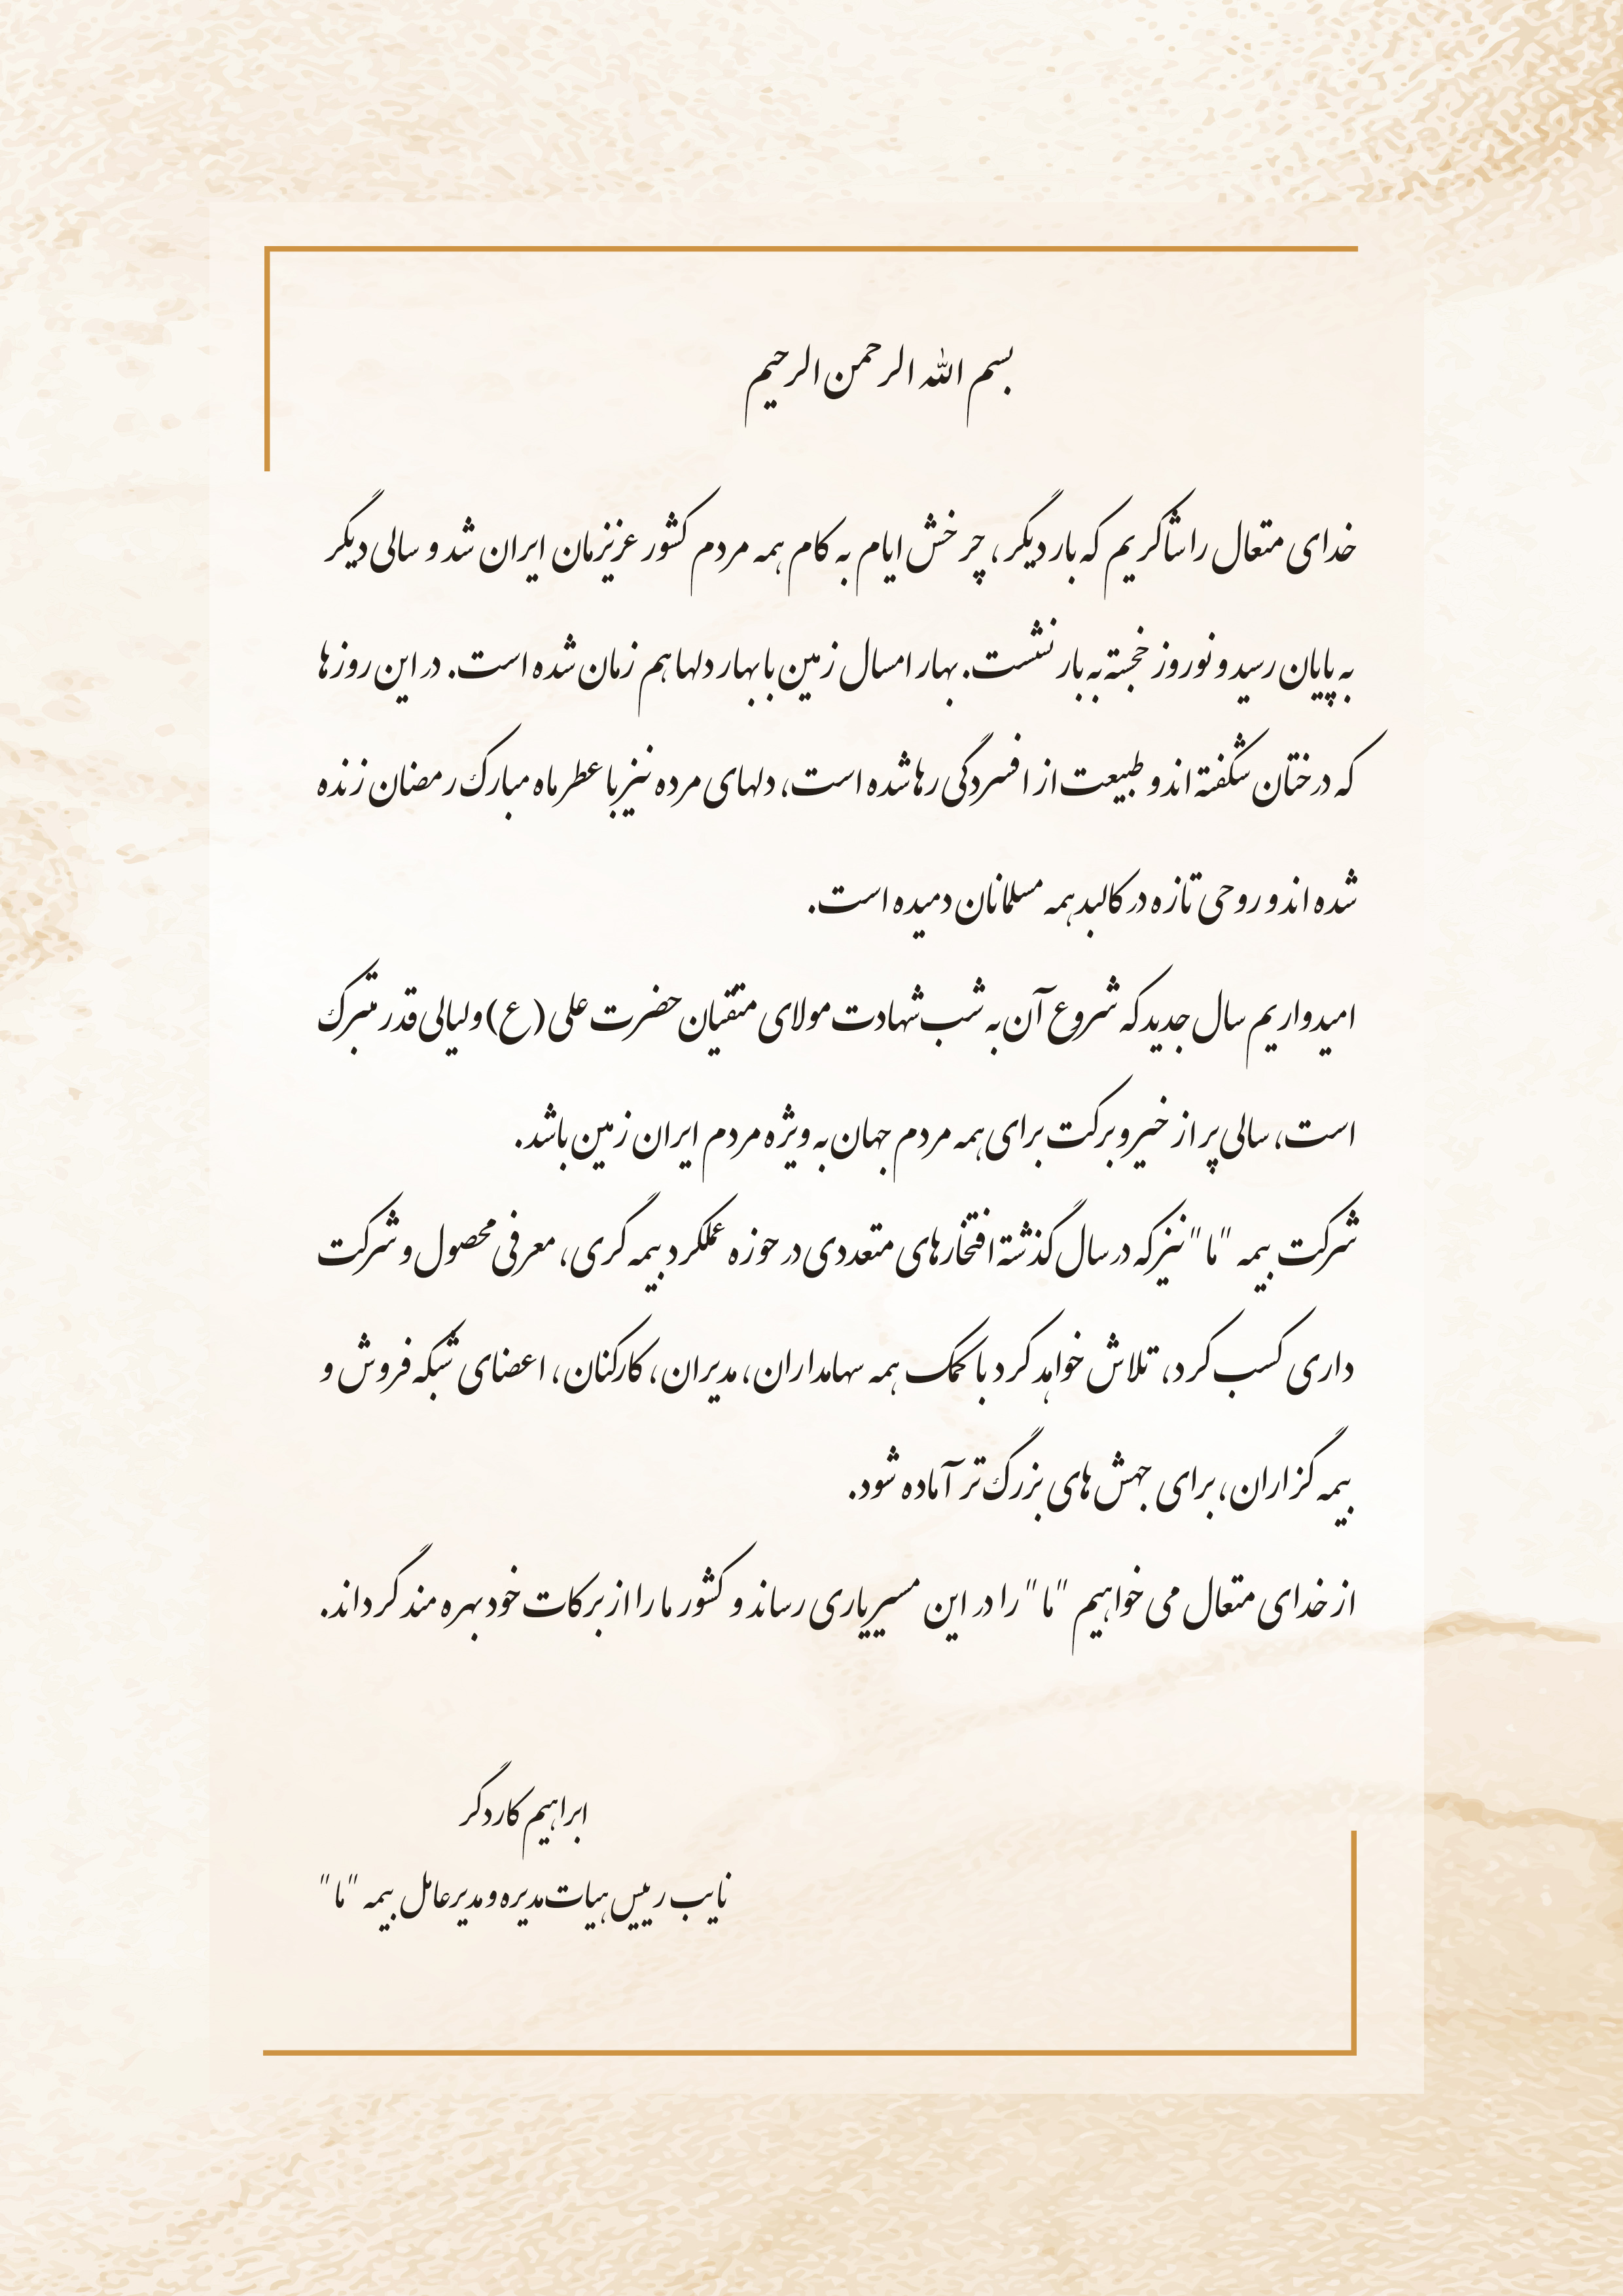 بسم الله الرحمن الرحیم
خدای متعال را شاکریم که بار دیگر، چرخش ایام به کام همه مردم کشور عزیزمان ایران شد و سالی دیگر
به پایان رسید و نوروز خجسته به بار نشست. بهار امسال زمین با بهار دلها هم زمان شده است. در این روزها
که درختان شکفته اند و طبیعت از افسردگی رها شده است، دلهای مرده نیز با عطر ماه مبارک رمضان زنده
شده اند و روحی تازه در کالبد همه مسلمانان دمیده است.
امیدواریم سال جدید که شروع آن به شب شهادت مولای متقیان حضرت علی (ع) و لیالی قدر متبرک
است، سالی پر از خیر و برکت برای همه مردم جهان به ویژه مردم ایران زمین باشد.
شرکت بیمه "ما" نیز که در سال گذشته افتخارهای متعددی در حوزه عملکرد بیمه گری، معرفی محصول و شرکت
داری کسب کرد، تلاش خواهد کرد با کمک همه سهامداران، مدیران، کارکنان، اعضای شبکه فروش و
بیمه گزاران، برای جهش های بزرگ تر آماده شود.
از خدای متعال می خواهیم "ما" را در این مسیر یاری رساند و کشور ما را از برکات خود بهره مند گرداند.
ابراهیم کاردگر
نایب رییس هیات مدیره و مدیرعامل بیمه "ما"